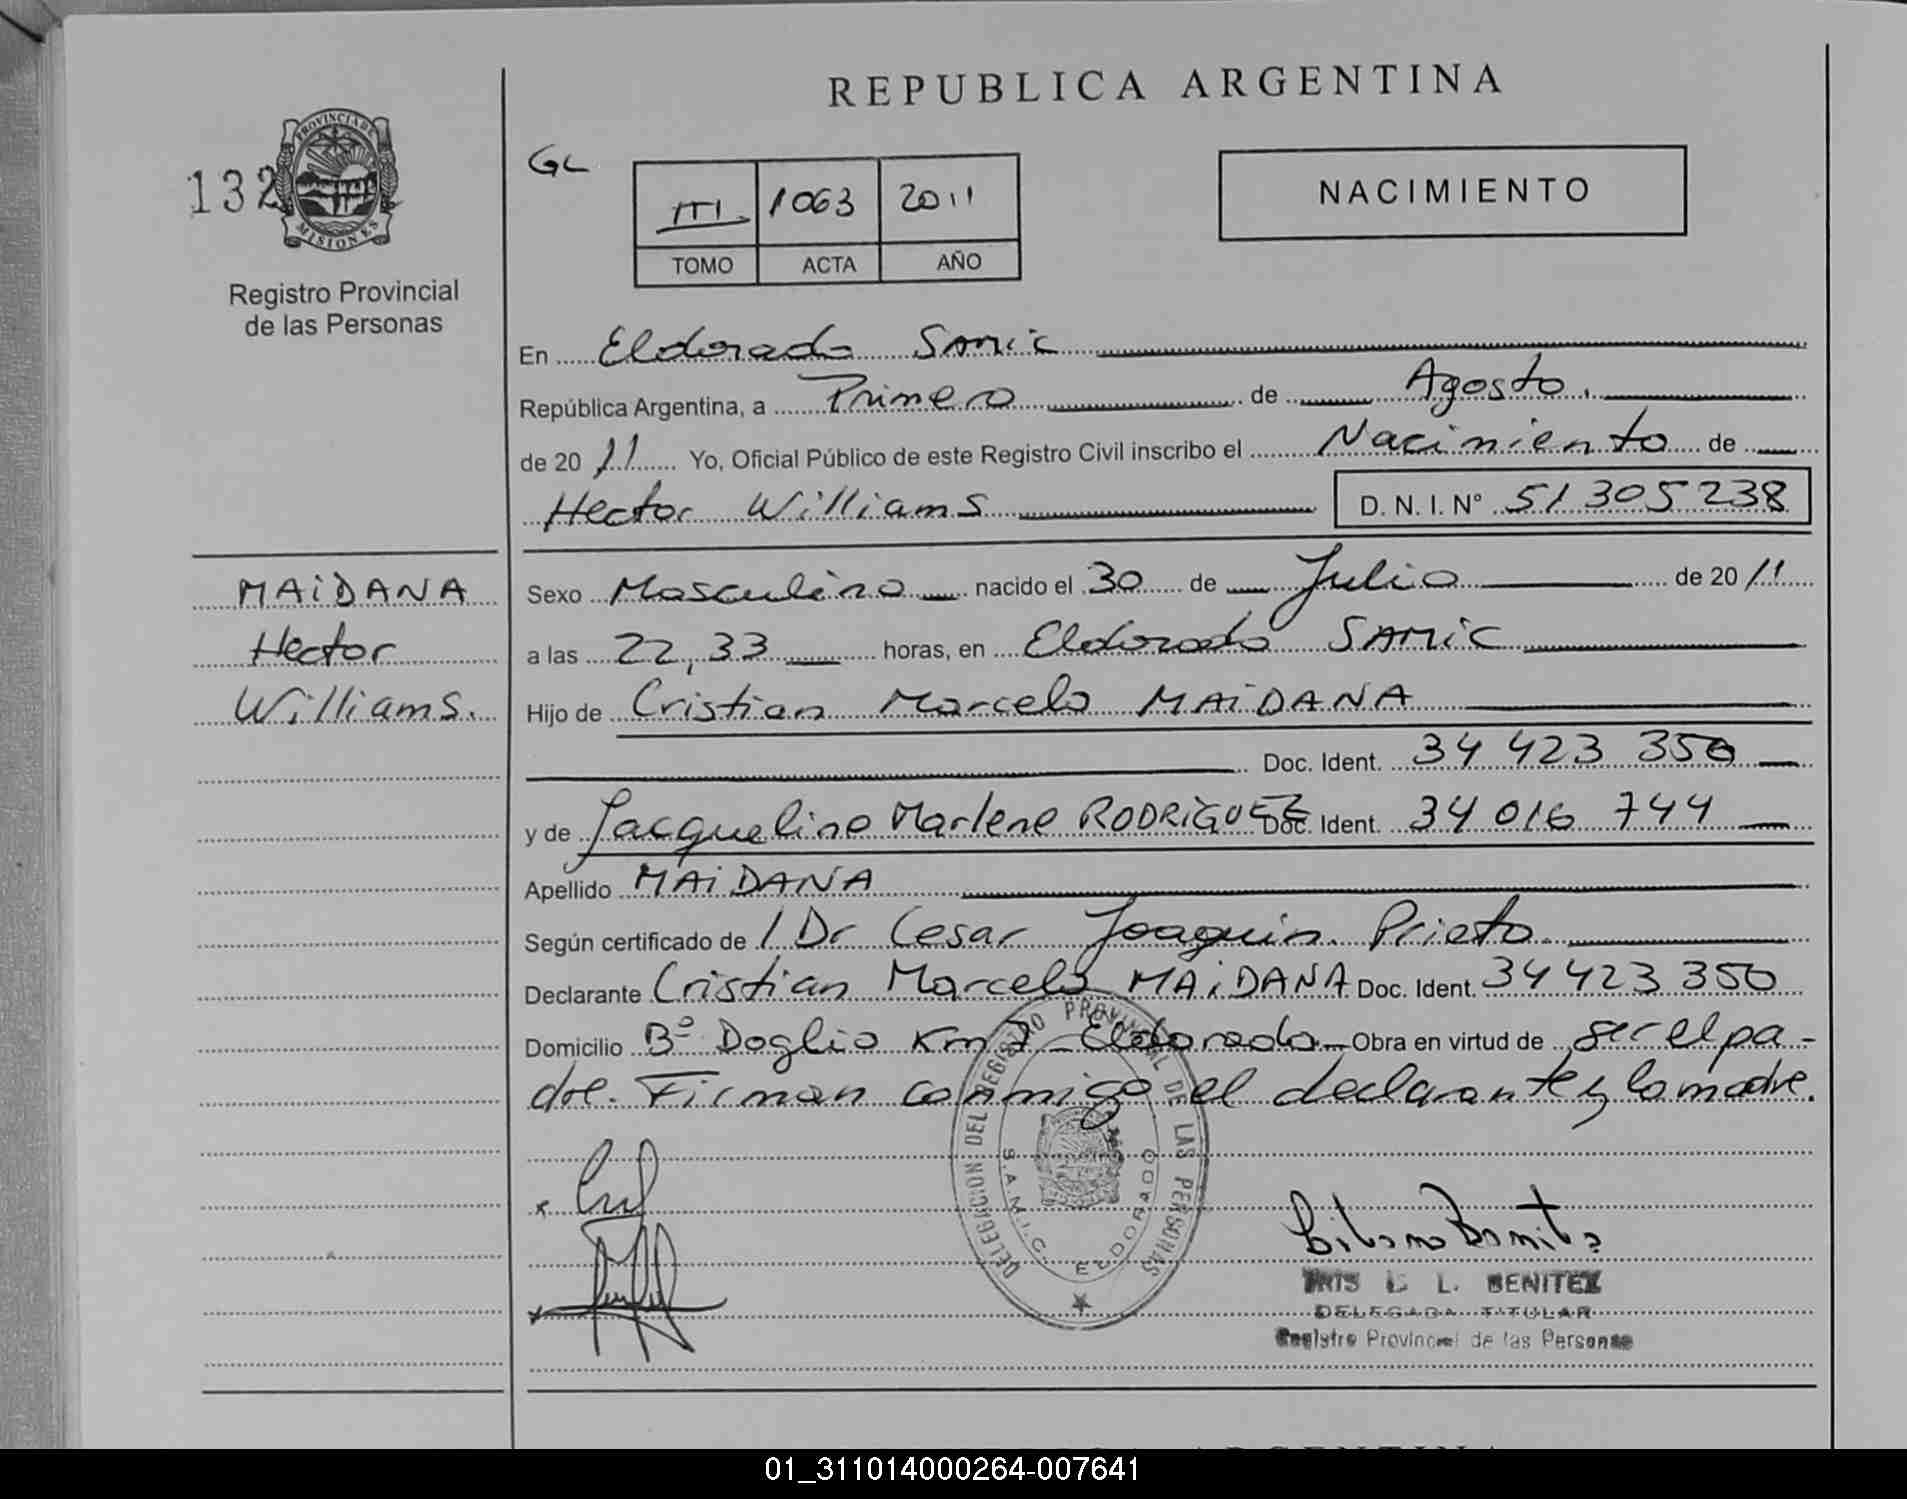 REPUBLICA ARGENTINA
132
PROVINCIA DE
MISIONES
Registro Provincial
de las Personas
GL
III 1063 2011
TOMO ACTA AÑO
NACIMIENTO
En Eldorado Samic
República Argentina, a Primero de Agosto.
de 20 11 Yo, Oficial Público de este Registro Civil inscribo el Nacimiento de
Hector Williams D. N. I. N° 51 305 238
MAiDANA
Hector
Williams.
Sexo Masculino nacido el 30 de Julio de 20 11
a las 22,33 horas, en Eldorado SAMiC
Hijo de Cristian Marcelo MAiDANA
Doc. Ident. 34 423 350
y de Jacqueline Marlene RODRiGUEZ Doc. Ident. 34 016 744
Apellido MAiDANA
Según certificado de / Dr Cesar Joaquin Prieto
Declarante Cristian Marcelo MAiDANA Doc. Ident. 34 423 350
Domicilio B° Doglio Km 7 - Eldorado - Obra en virtud de ser el pa-
dre. Firman conmigo el declarante y la madre.
DELEGACION DEL REGISTRO PROVINCIAL DE LAS PERSONAS
S.A.M.I.C. ELDORADO
BENITEZ
DELEGADA TITULAR
Registro Provincial de las Personas
REPUBLICA ARGENTINA
01_311014000264-007641